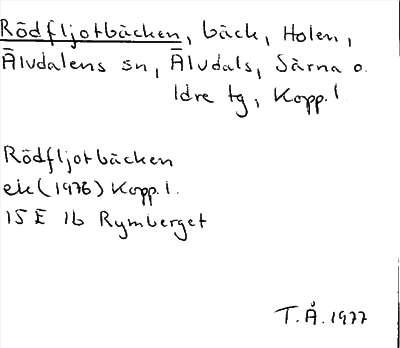 Rödfljotbäcken, bäck, Holen,
Älvdalens sn, Älvdals, Särna o.
Idre tg, Kopp. l
Rödfljotbäcken
ek (1976) Kopp. l.
15 E 1b Rymberget
T.Å. 1977